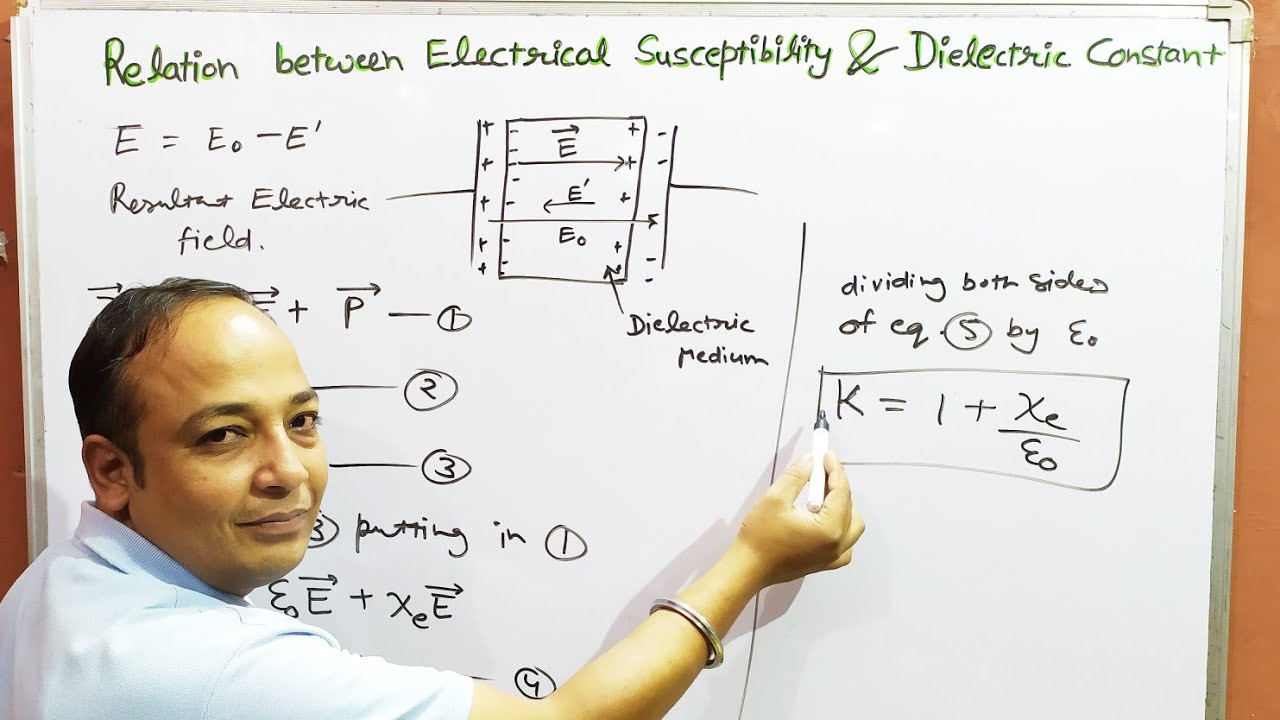 Relation between Electrical Susceptibility & Dielectric Constant
E = E₀ − E'
Resultant Electric
field.
+ + + + +
- - - - - - -
E⃗
E'
E₀
+ + + + +
- - - - -
Dielectric
Medium
+ P⃗ — ①
②
③
③ putting in ①
ε₀E⃗ + χₑE⃗
④
dividing both sides
of eq. ⑤ by ε₀
K = 1 + χₑ/ε₀